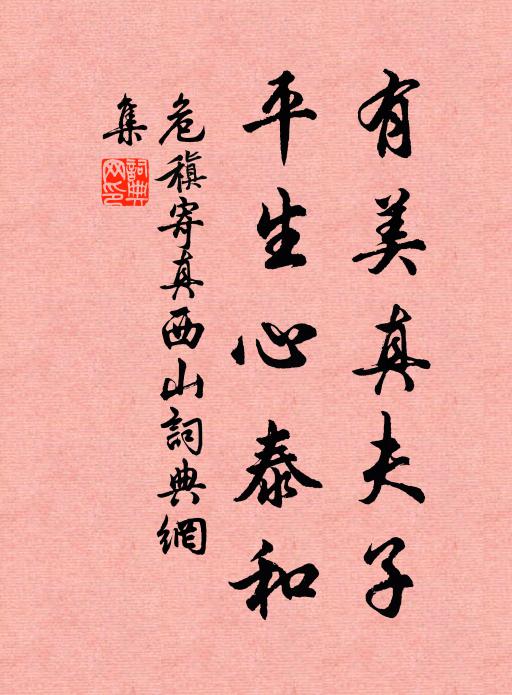 有美真夫子
平生心泰和
危稹寄真西山詞典網
集
詞典
网印